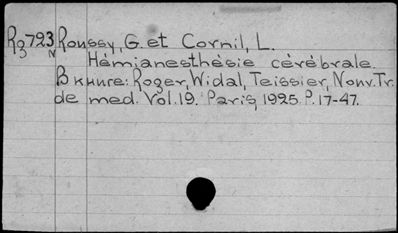 Rg723 Roussy, G. et Cornil, L.
N
Hémianesthésie cérébrale.
Вкниге: Roger, Widal, Teissier, Nouv. Tr.
de med. Vol. 19. Paris, 1925. P. 17-47.